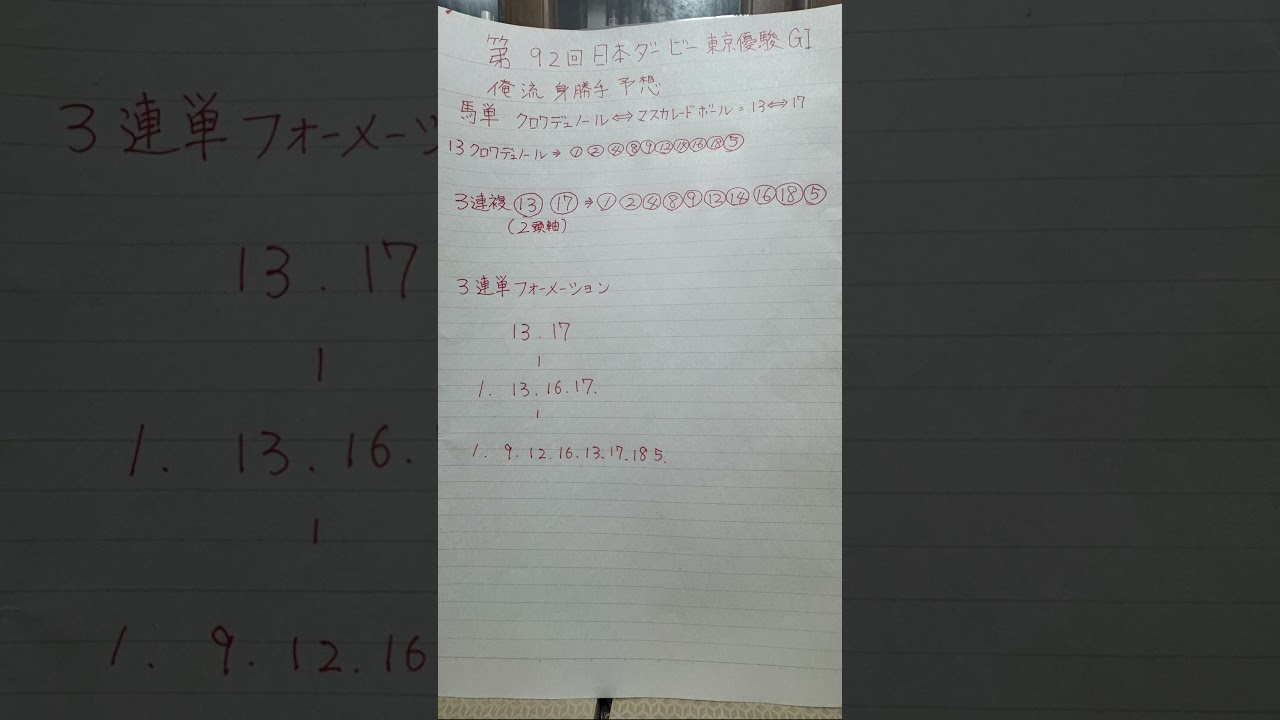 第92回日本ダービー東京優駿GI
俺流身勝手予想
馬単 クロワデュノール⇔マスカレードボール=13⇔17
13クロワデュノール⇒①②④⑧⑨⑫⑱⑯⑱⑤
3連複⑬⑰⇒①②④⑧⑨⑫⑭⑯⑱⑤
(2頭軸)
3連単フォーメーション
13.17
1. 13.16.17.
1. 9.12.16.13.17.18 5.
3連単フォーメーシ
13.17
1. 13.16.
1. 9.12.16